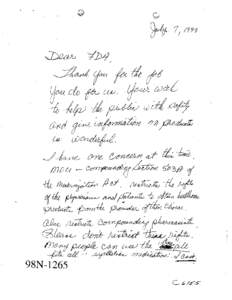 July 7, 1999
Dear FDA,
Thank you for the job
you do for us. Your work
to help the public with safety
and give information on products
is wonderful.
I have one concern at this time.
MOU - compounding section 503A of
the Modernization Act. restricts the rights
of the physicians and patients to obtain healthcare
products from the provider of their choice.
Also restricts compounding pharmacists.
Please don't restrict these rights.
Many people can use the
fits all -
98N-1265